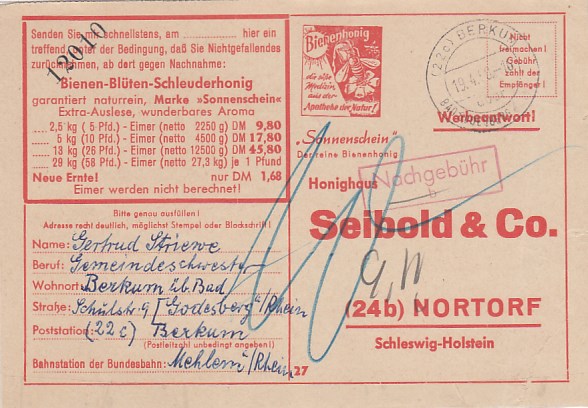 Senden Sie mir schnellstens, am ________ hier ein
treffend, unter der Bedingung, daß Sie Nichtgefallendes
zurücknehmen, ab dort gegen Nachnahme:
12010
"Bienen-Blüten-Schleuderhonig
garantiert naturrein, Marke »Sonnenschein"
Extra-Auslese, wunderbares Aroma
2,5 kg ( 5 Pfd.) - Eimer (netto 2250 g) DM 9,80
5 kg (10 Pfd.) - Eimer (netto 4500 g) DM 17,80
13 kg (26 Pfd.) - Eimer (netto 12500 g) DM 45,80
29 kg (58 Pfd.) - Eimer (netto 27,3 kg) je 1 Pfund
Neue Ernte! nur DM 1,68
Eimer werden nicht berechnet!
Bitte genau ausfüllen!
Adresse recht deutlich, möglichst Stempel oder Blockschrift!
Name: Gertrud Striewe
Beruf: Gemeindeschwester
Wohnort: Berkum üb. Bad
Straße: Schulstr. 9 [Godesberg/Rhein
Poststation: (22c) Berkum
(Postleitzahl unbedingt angeben!)
Bahnstation der Bundesbahn: Mehlem/Rhein
27
Bienenhonig
die süße
Medizin
aus der
Apotheke der Natur!
(22c) BERKUM
19.4.
Nicht
freimachen!
Gebühr
zahlt der
Empfänger!
Werbeantwort!
"Sonnenschein"
Der reine Bienenhonig
Nachgebühr
Honighaus
Seibold & Co.
(24b) NORTORF
Schleswig-Holstein